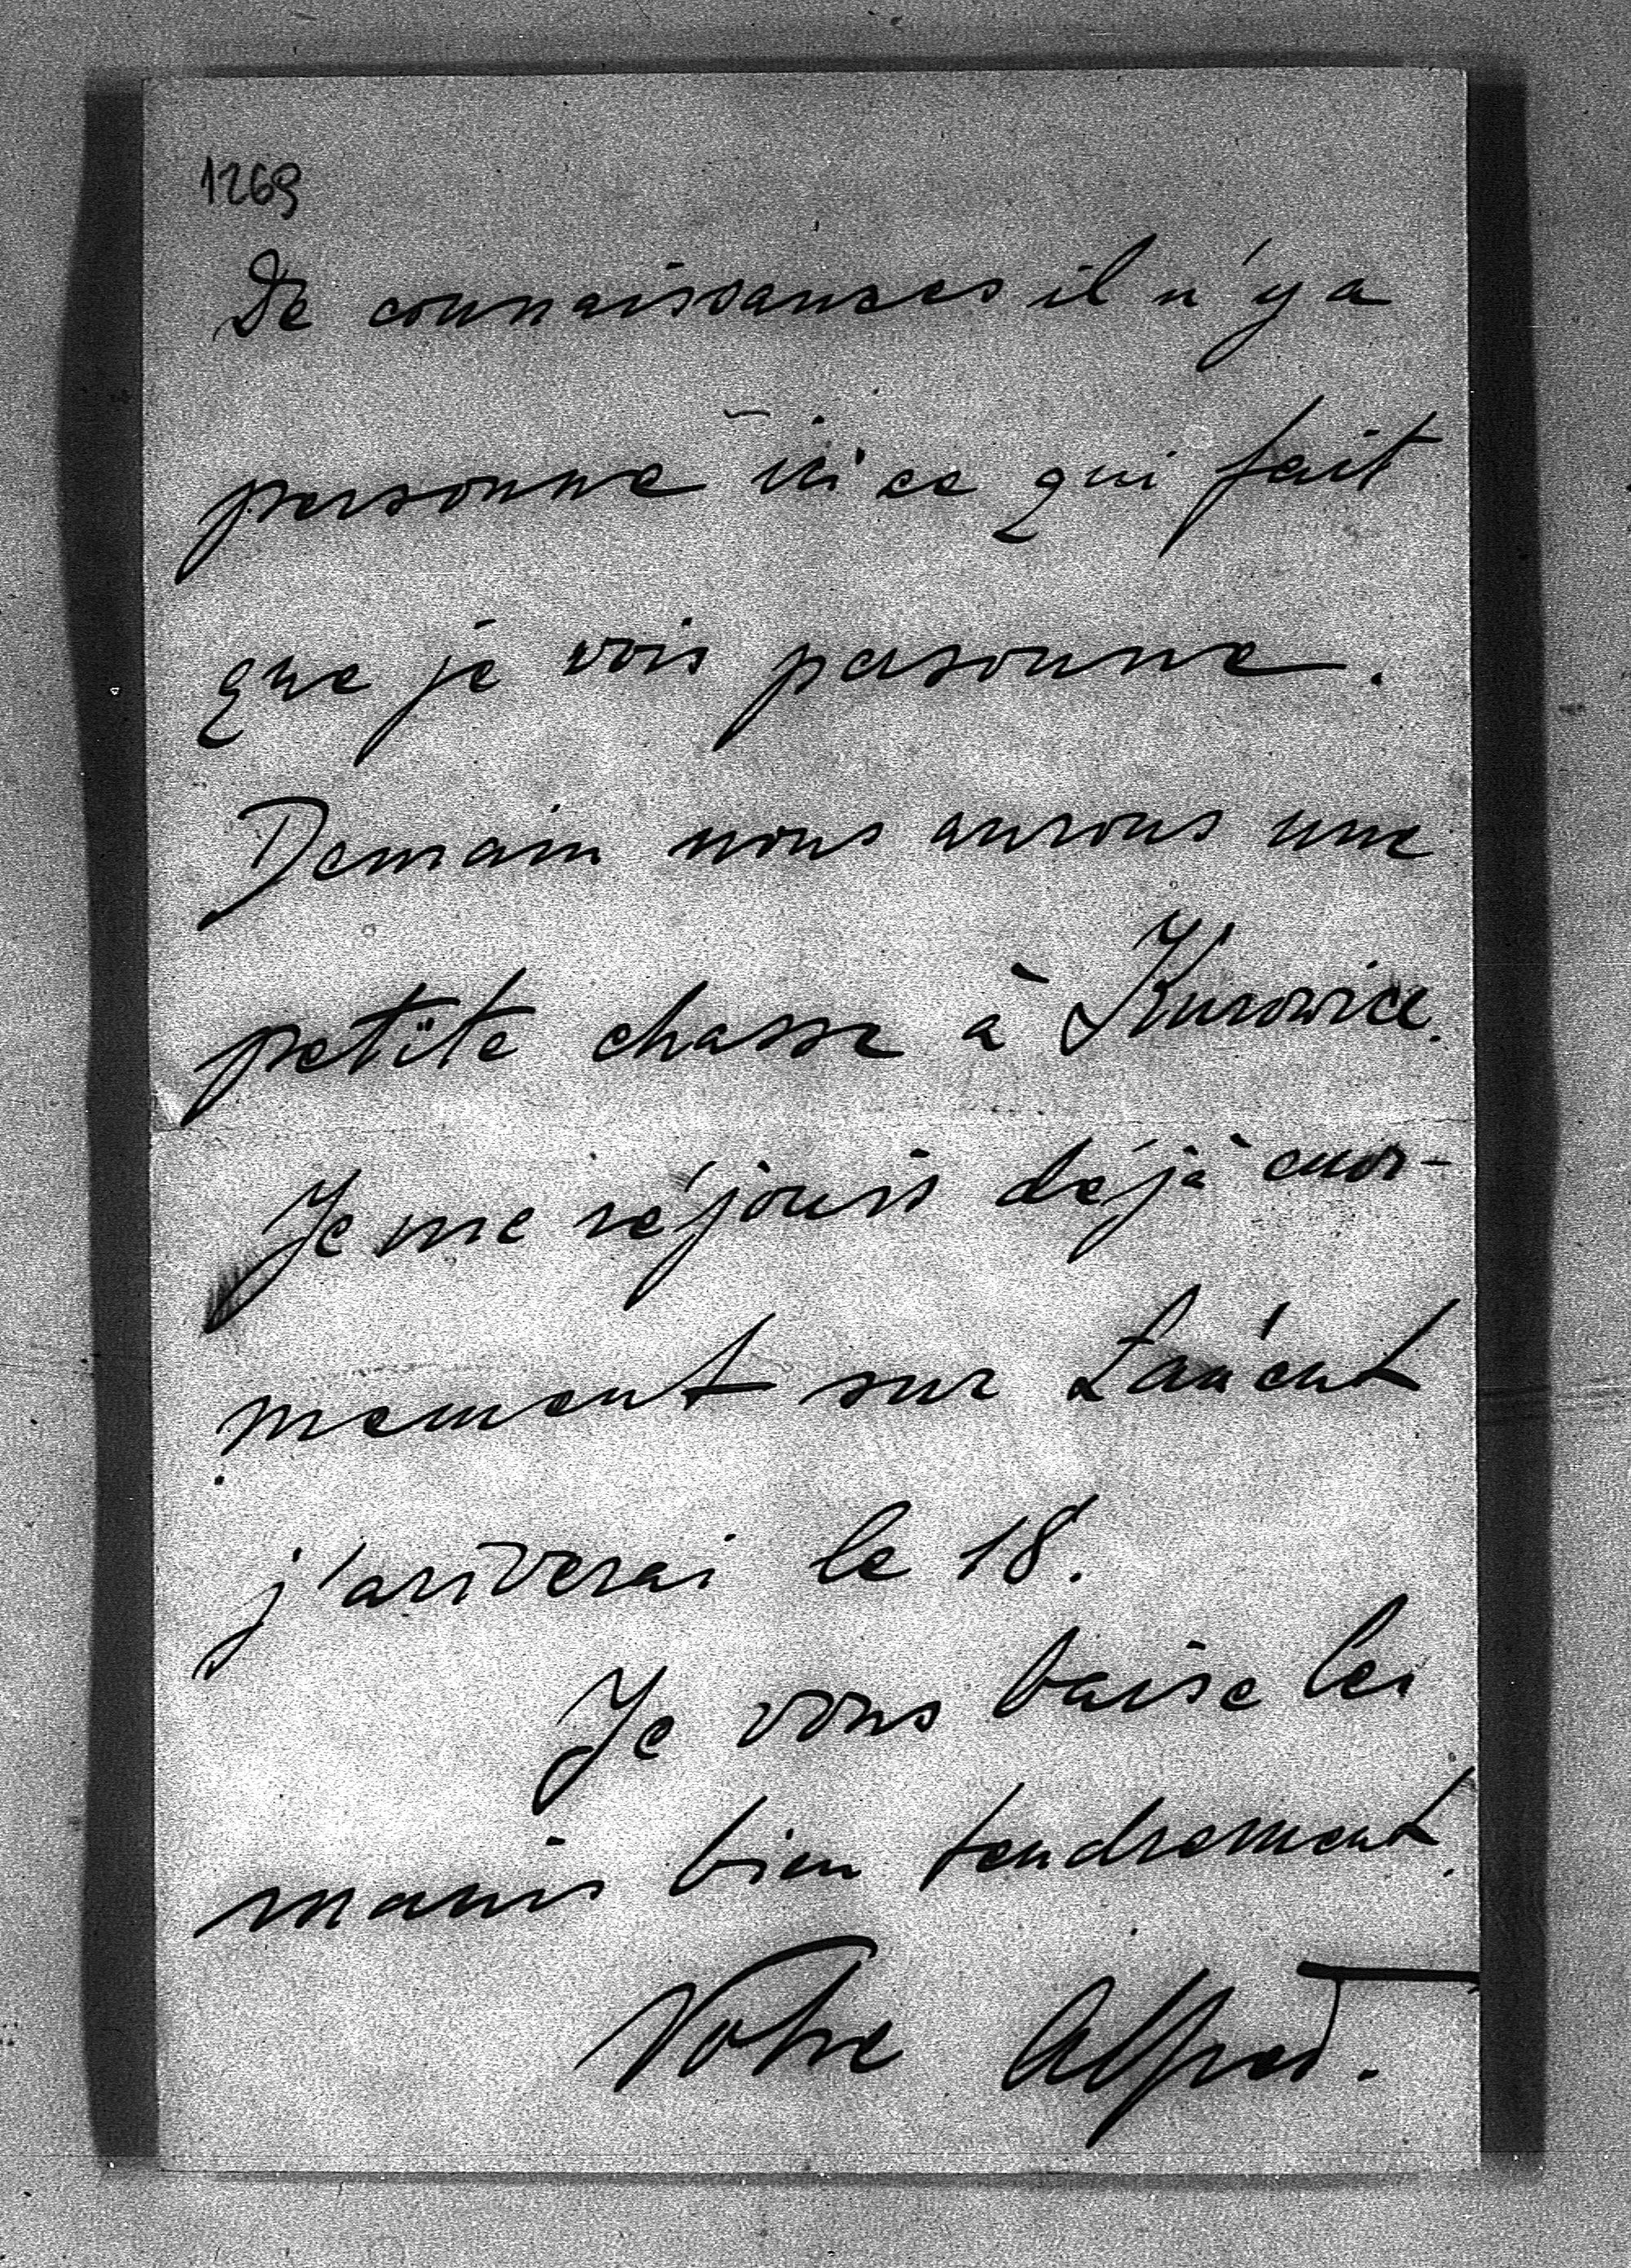 1269
De connaissances il n'y a
personne ici ce qui fait
que je vois personne.
Demain nous aurons une
petite chasse à Kurowice.
Je me réjouis déjà enor-
mement sur Łańcut
j'ariverai le 18.
Je vous baise les
mains bien tendrement.
Votre Alfred.